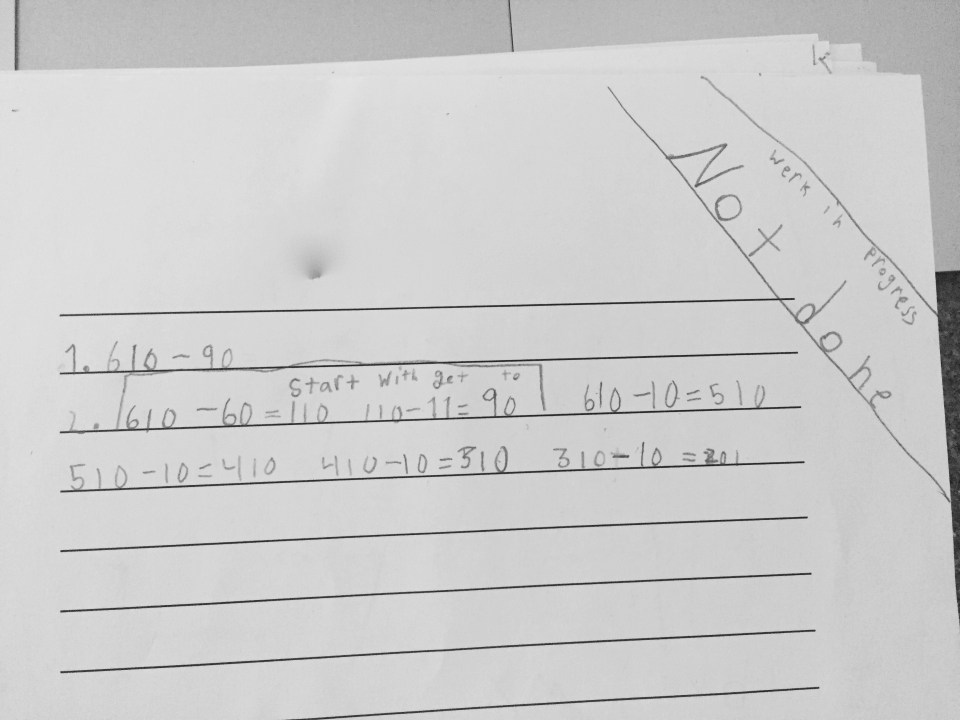 Not done
werk in progress
1. 610 - 90
Start with get to
2. 610 - 60 = 110 110 - 11 = 90 610 - 10 = 510
510 - 10 = 410 410 - 10 = 310 310 - 10 = 201